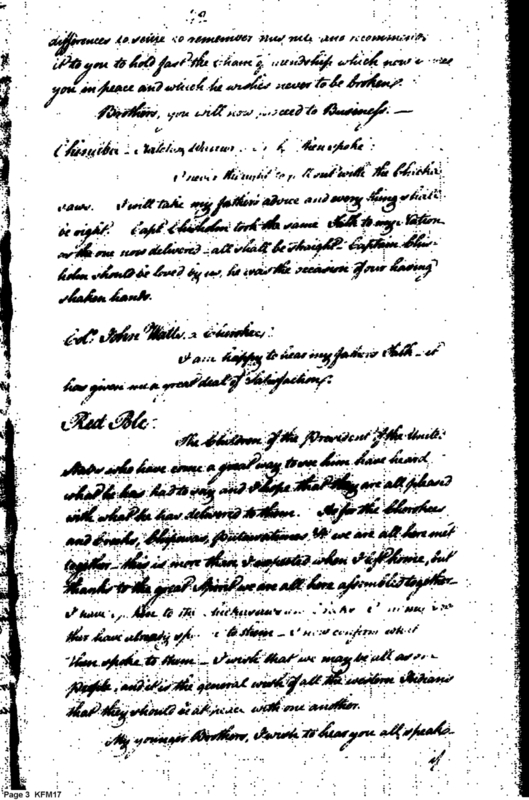 differences to seize to remember his and recommends
it to you to hold fast the chain of friendship which now
you in peace and which he wishes never to be broken.
Brothers, you will now proceed to Business. —
then spoke:
I never thought out with the Chicka-
saws. I will take my father's advice and every thing shall
be right. Capt Chisholm took the same Talk to my Nation
as the one now delivered - all shall be straight - Captain Chis-
holm should be loved by us, he was the occasion of our having
shaken hands.
Col. John Watts, a Cherokee:
I am happy to hear my father's Talk - it
has given me a great deal of Satisfaction.
Red Pole:
The Children of the President of the United
States who have come a great way to see him have heard
what he has had to say and I hope that they are all pleased
with what he has delivered to them. As for the Cherokees
and Creeks, Chipewas, Putawatimes, &c we are all here met
together - this is more than I expected when I left home, but
thanks to the great Spirit we are all here assembled together
I have spoken to the
this have already to them - I now confirm what
then spoke to them - I wish that we may be all as one
people, and it is the general wish of all the western Indians
that they should be at peace with one another.
My younger Brothers, I wish to hear you all speak -
Page 3 KFM17